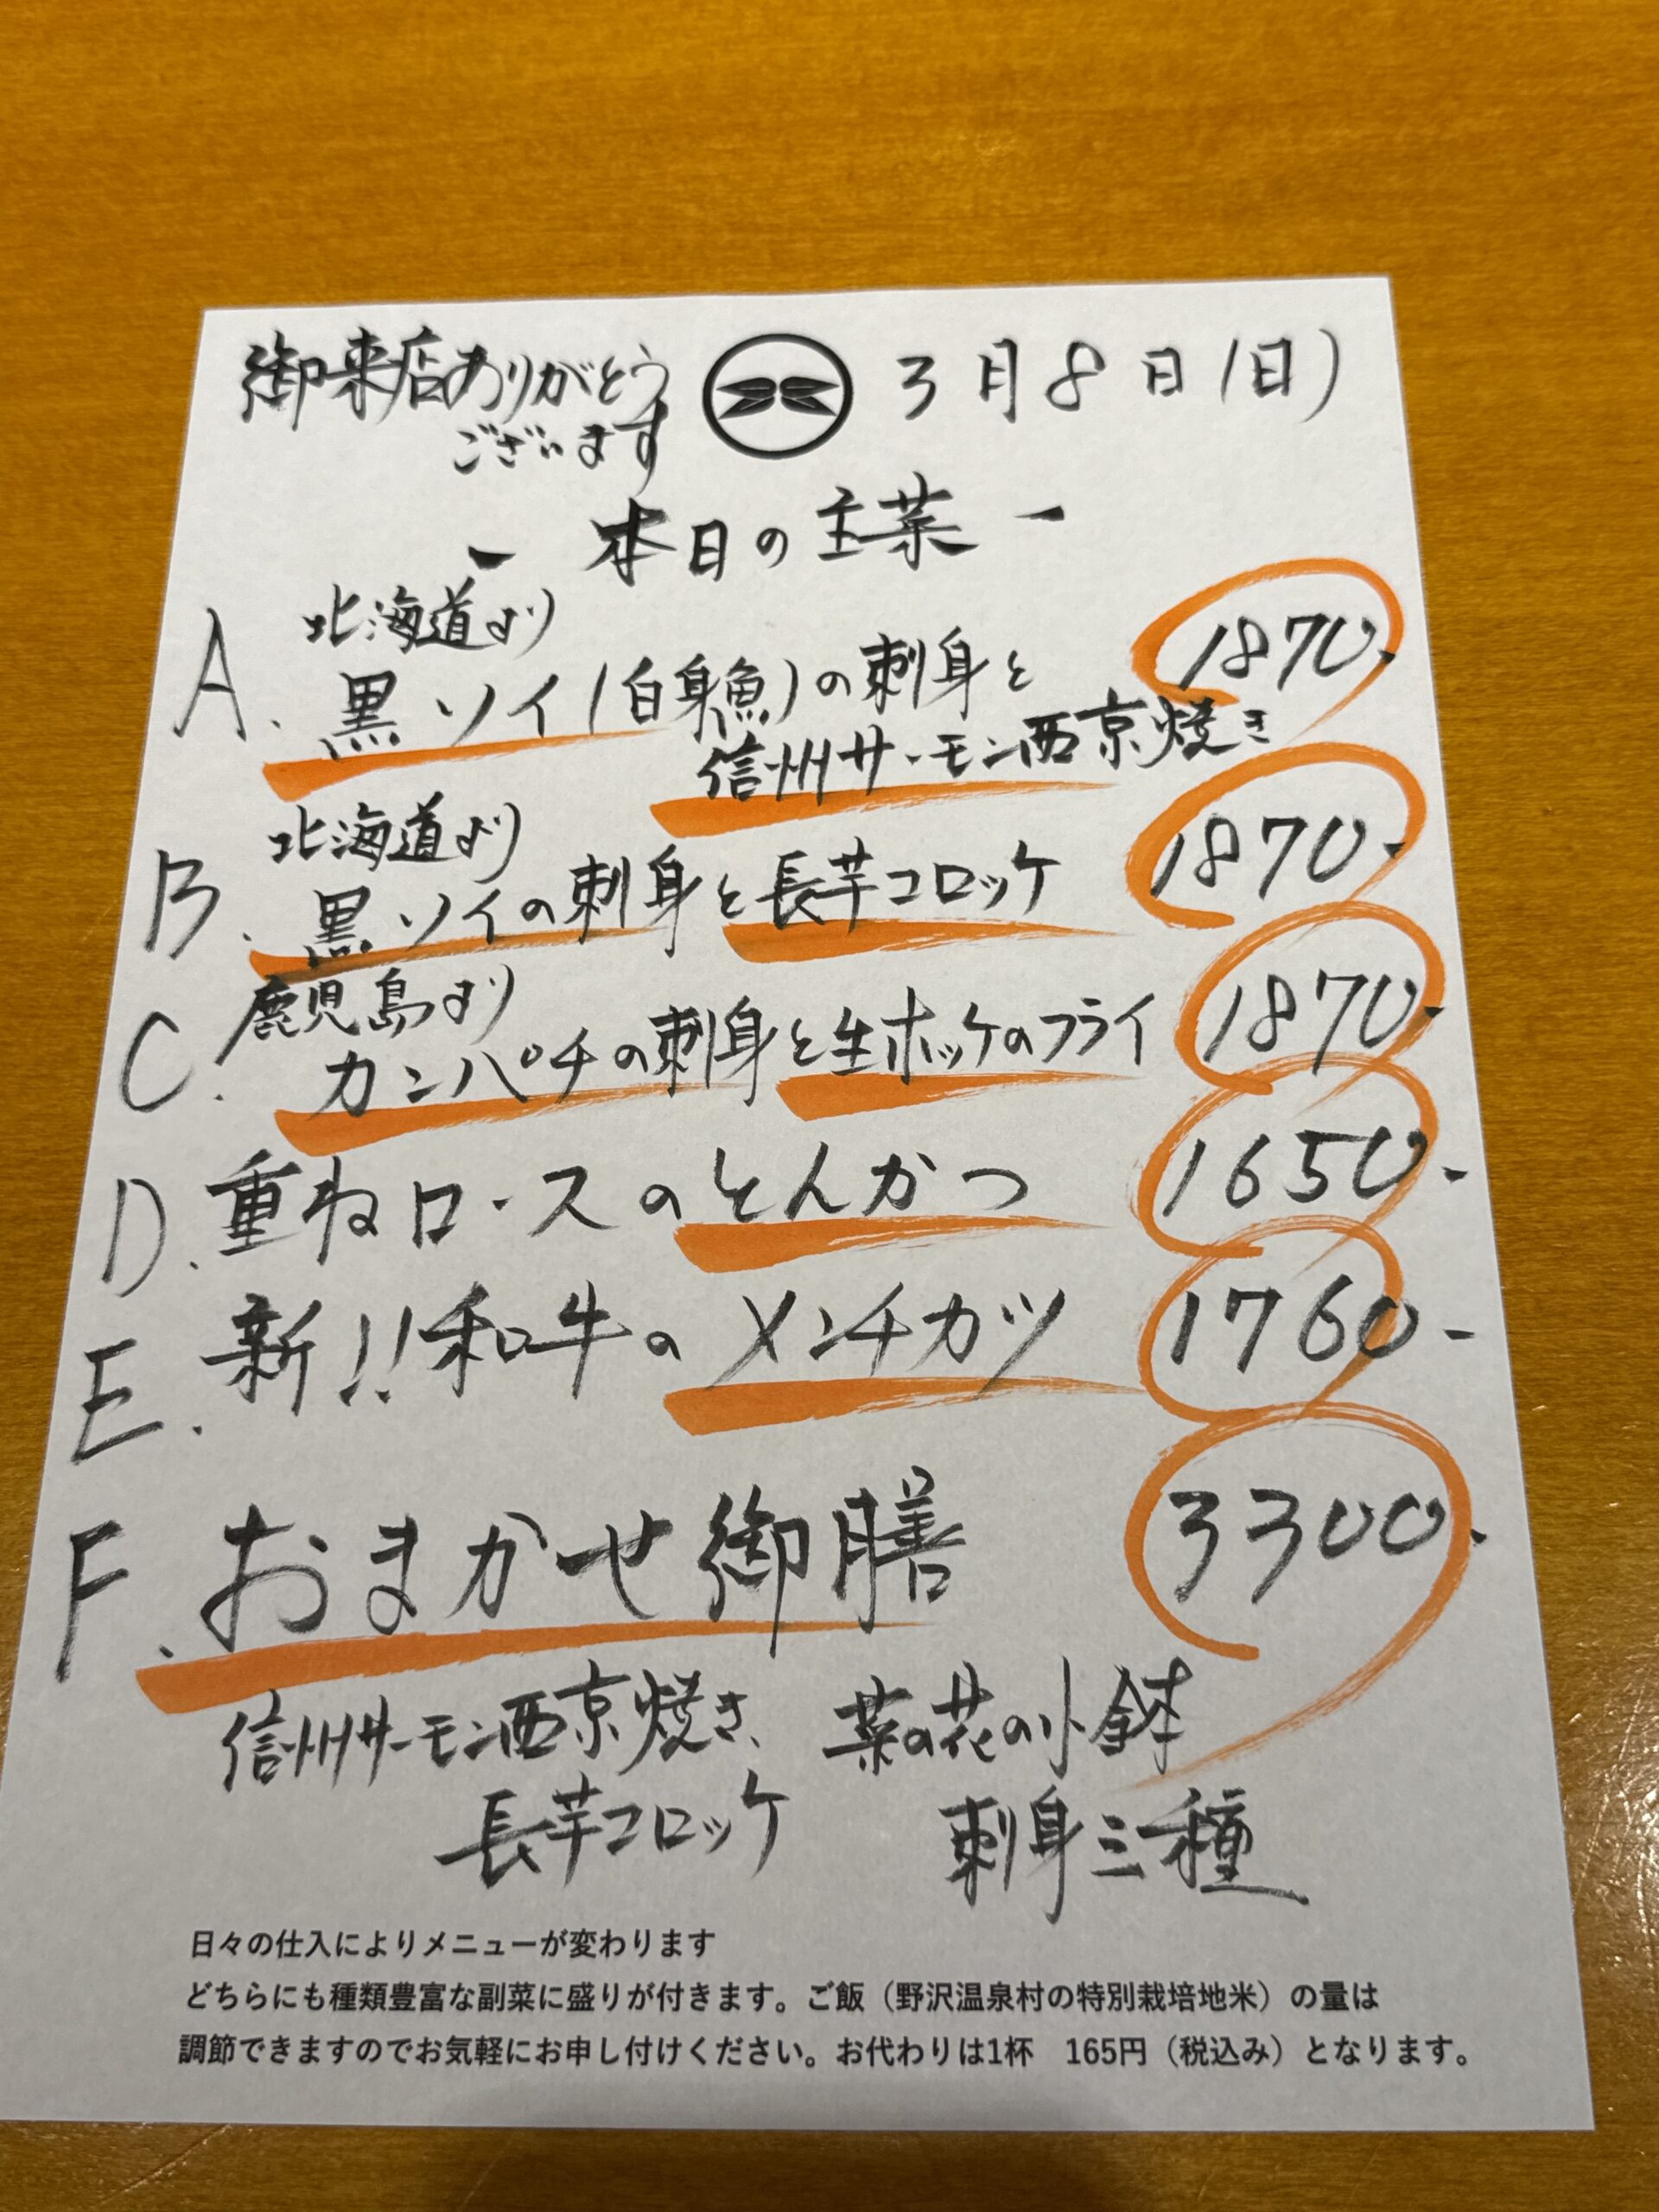 御来店ありがとう
ございます
3月8日(日)
- 本日の主菜 -
A. 北海道より
黒ソイ(白身魚)の刺身と 1870.-
信州サーモン西京焼き
B. 北海道より
黒ソイの刺身と長芋コロッケ 1870.-
C. 鹿児島より
カンパチの刺身と生ホッケのフライ 1870.-
D. 重ねロースのとんかつ 1650.-
E. 新!!和牛のメンチカツ 1760-
F. おまかせ御膳 3300.-
信州サーモン西京焼き、菜の花の小鉢
長芋コロッケ 刺身三種
日々の仕入によりメニューが変わります
どちらにも種類豊富な副菜に盛りが付きます。ご飯（野沢温泉村の特別栽培地米）の量は
調節できますのでお気軽にお申し付けください。お代わりは1杯　165円（税込み）となります。